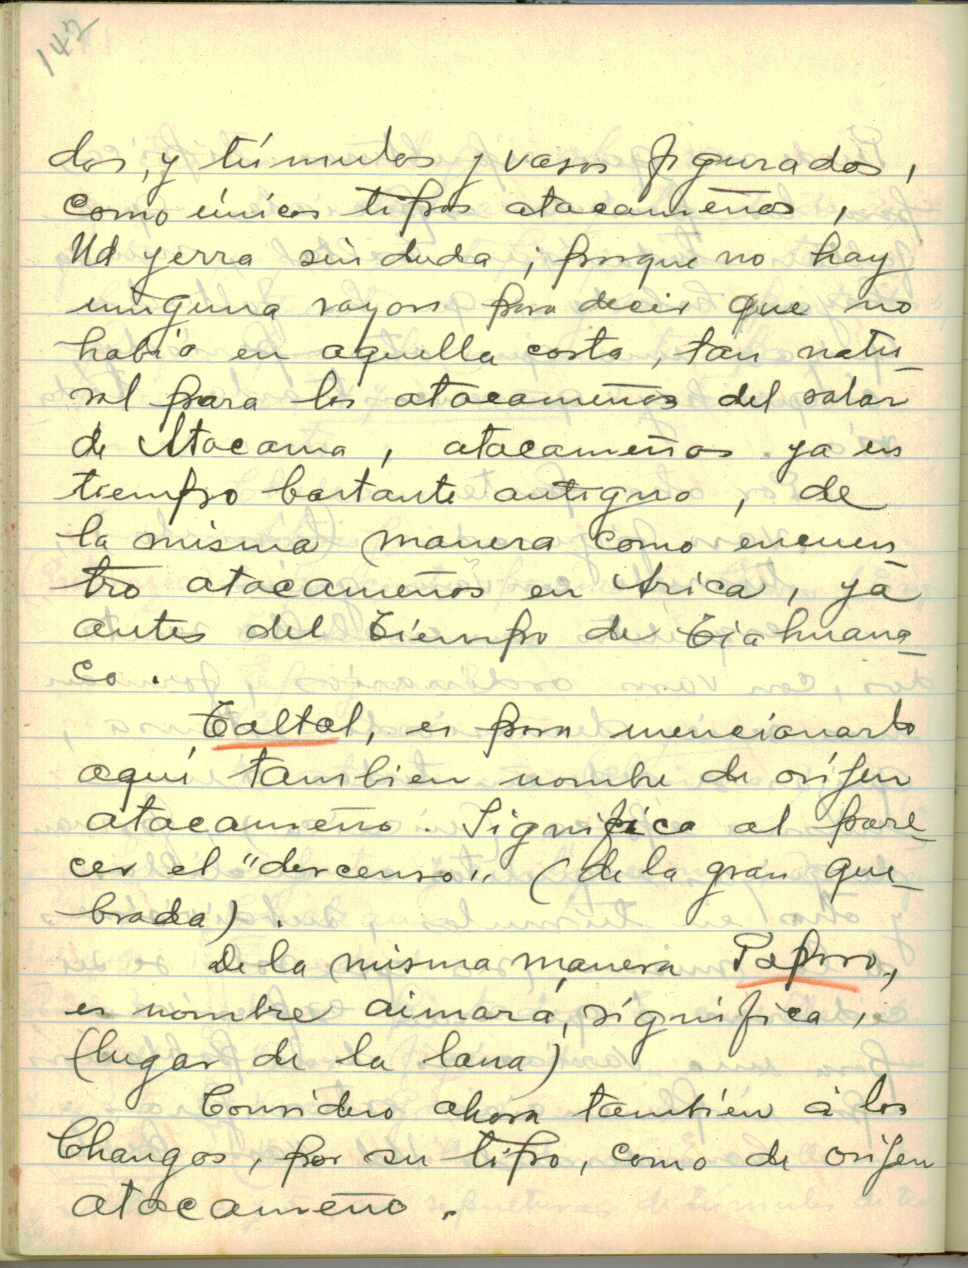 142
dos, y túmulos y vasos figurados,
como únicos tipos atacameños,
Ud yerra sin duda; porque no hay
ninguna razon para decir que no
habia en aquella costa, tan natu
ral para los atacameños del salar
de Atacama, atacameños ya en
tiempo bastante antiguo, de
la misma manera como encuen
tro atacameños en Arica, ya
antes del Tiempo de Tiahuana_
co.
Taltal, es para mencionarlo
aqui tambien nombre de oríjen
atacameño. Significa al pare_
cer el "descenso" (de la gran que_
brada).
De la misma manera Paposo,
es nombre aimará, significa,
(lugar de la lana)
Considero ahora tambien á los
Changos, por su tipo, como de orijen
atacameño.